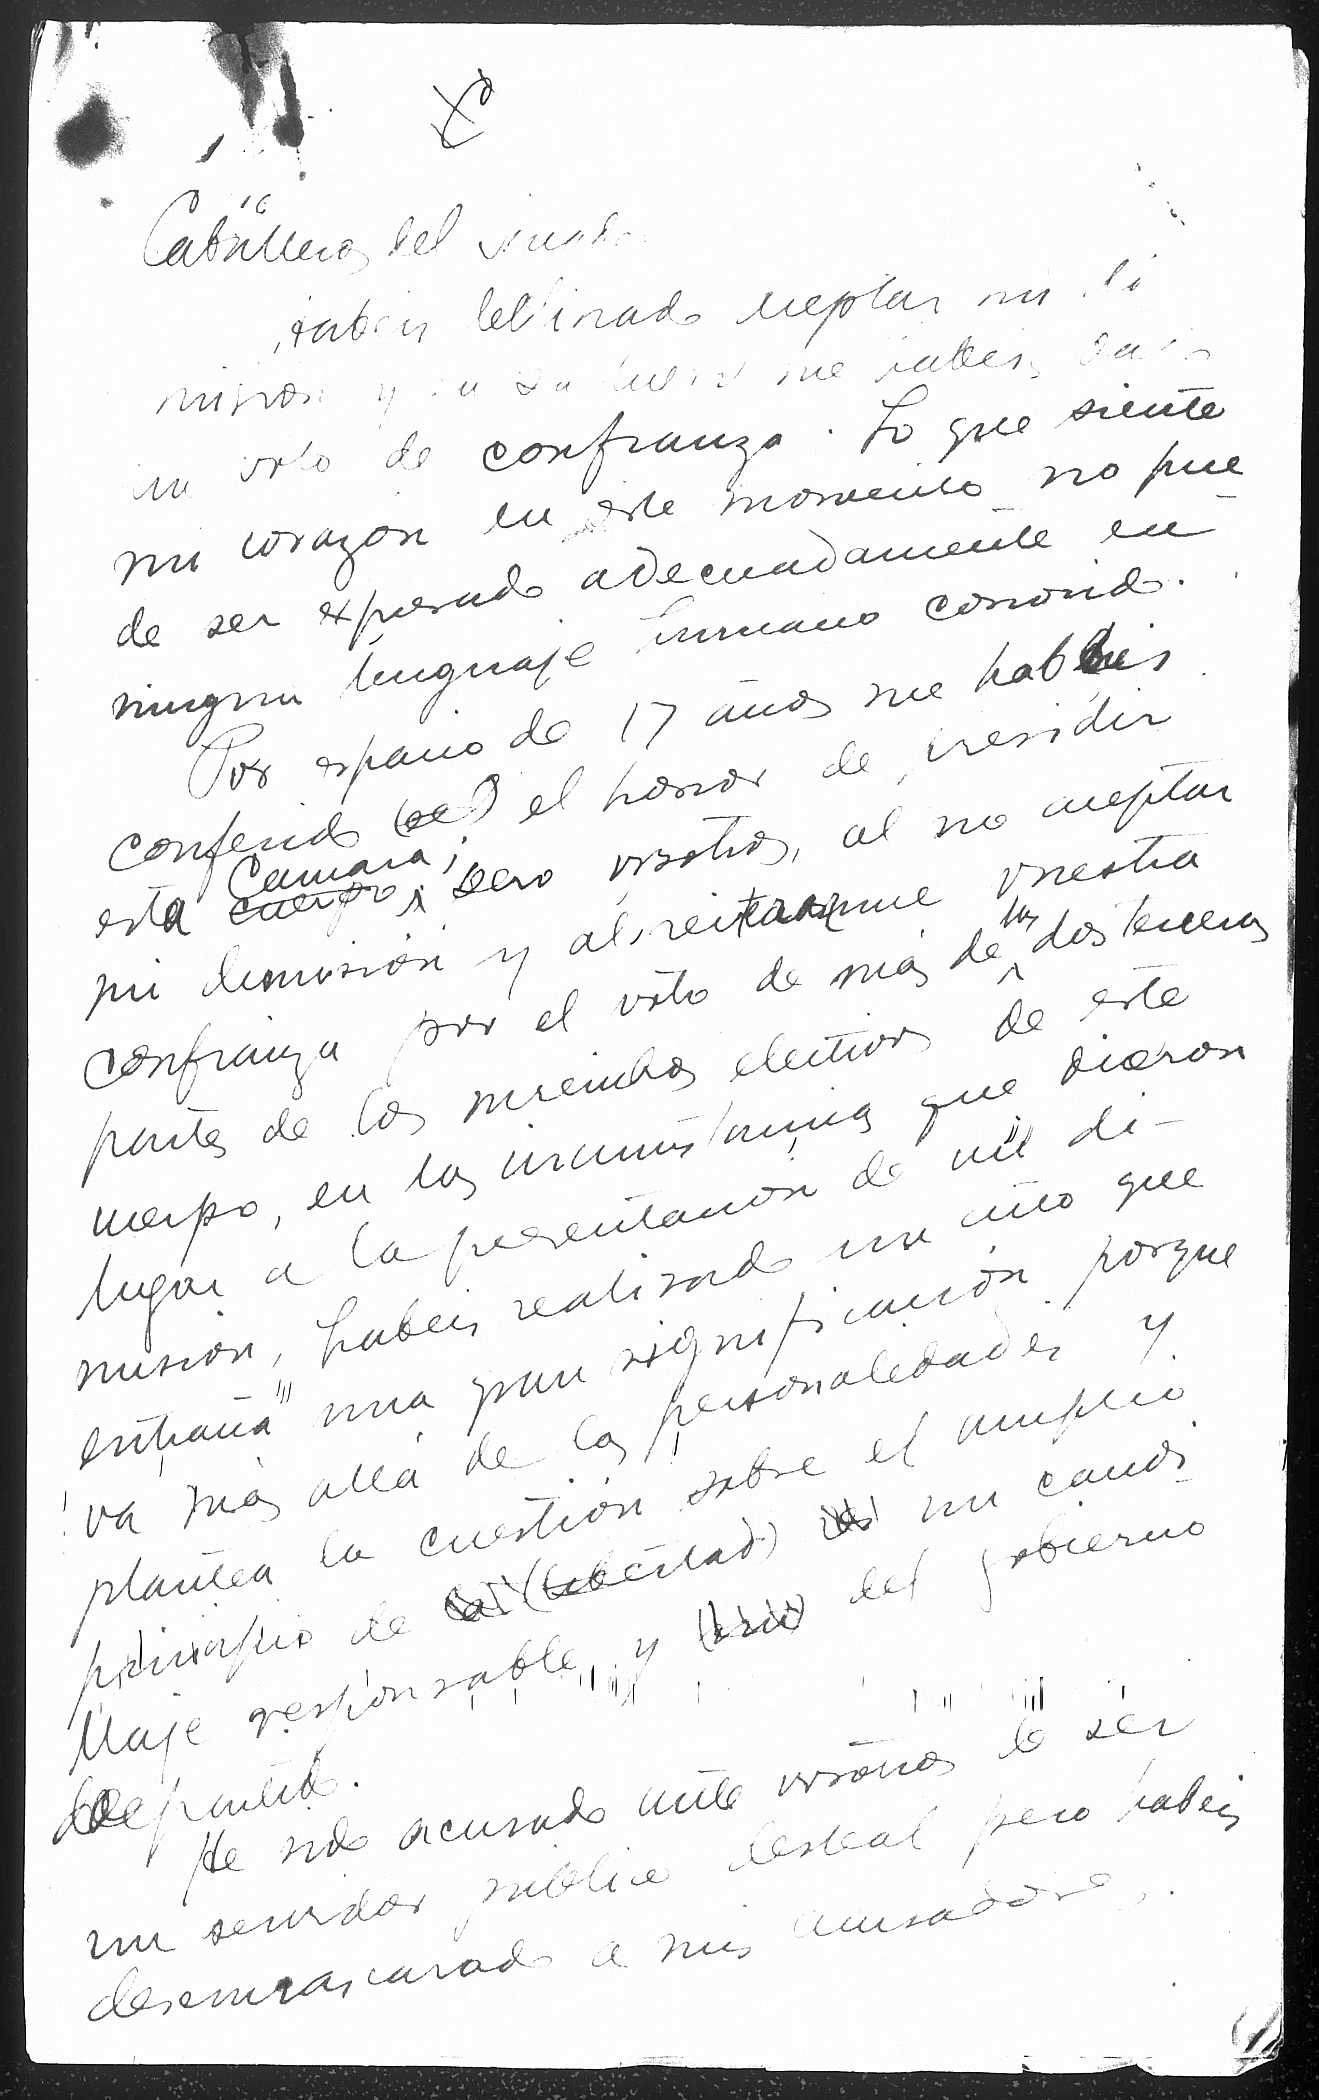 Caballeros del Senado
Habeis declinado aceptar mi di
mision y en su lugar me habeis dado
un voto de confianza. Lo que siente
mi corazon en este momento no pue
de ser expresado adecuadamente en
ningun lenguaje humano conocido.
Por espacio de 17 años me habeis
conferido el honor de presidir
esta cuerpo Camara; pero vosotros, al no aceptar
mi dimisión y al reiterarme vuestra
confianza por el voto de más de las dos terceras
partes de los miembros electivos de este
cuerpo, en las circunstancias que dieron
lugar a la presentación de mi di-
misión, habeis realizado un acto que
entraña una gran significación porque
va más allá de las personalidades y
plantea la cuestión sobre el amplio
principio de la (libertad) un caudi
llaje responsable y del gobierno
de partido.
He sido acusado ante vosotros de ser
un servidor público desleal pero habeis
desenmascarado a mis acusadores.